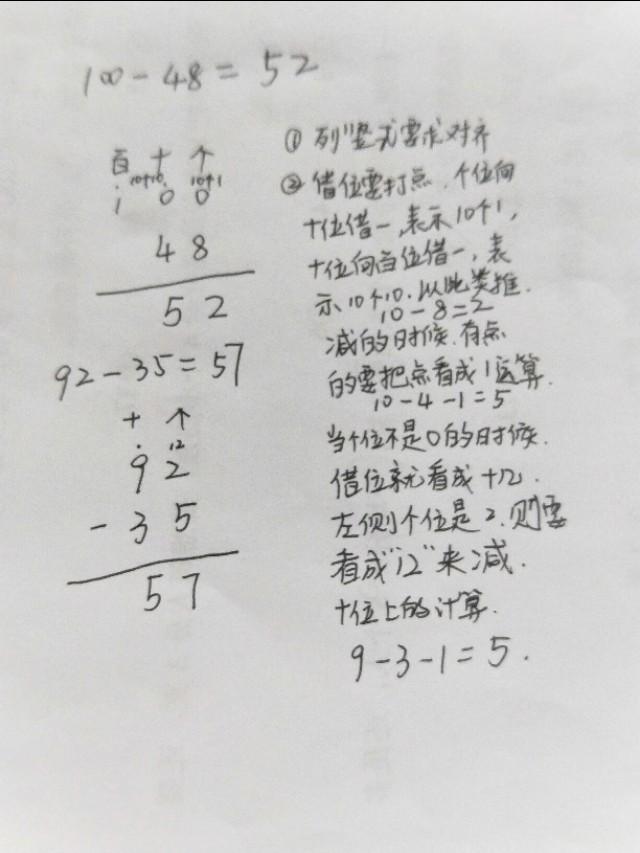 100-48=52
百 十 个
10个10 10个1
1 0 0
4 8
5 2
92-35=57
十 个
· 12
9 2
- 3 5
5 7
① 列竖式要求对齐
② 借位要打点.个位向
十位借一,表示10个1,
十位向百位借一,表
示10个10.以此类推.
10-8=2
减的时候.有点
的要把点看成1运算.
10-4-1=5
当个位不是0的时候.
借位就看成十几.
左侧个位是2.则要
看成"12"来减.
十位上的计算.
9-3-1=5.